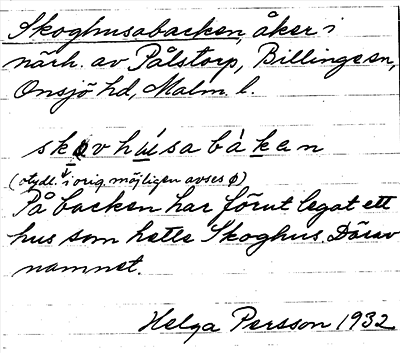 Skoghusabacken, åker i
närh. av Pålstorp, Billinge sn,
Onsjö hd, Malm. l.
skøvhúsabàkan
(otydl. i orig. möjligen avses ø)
På backen har förut legat ett
hus som hette Skoghus. Därav
namnet.
Helga Persson 1932